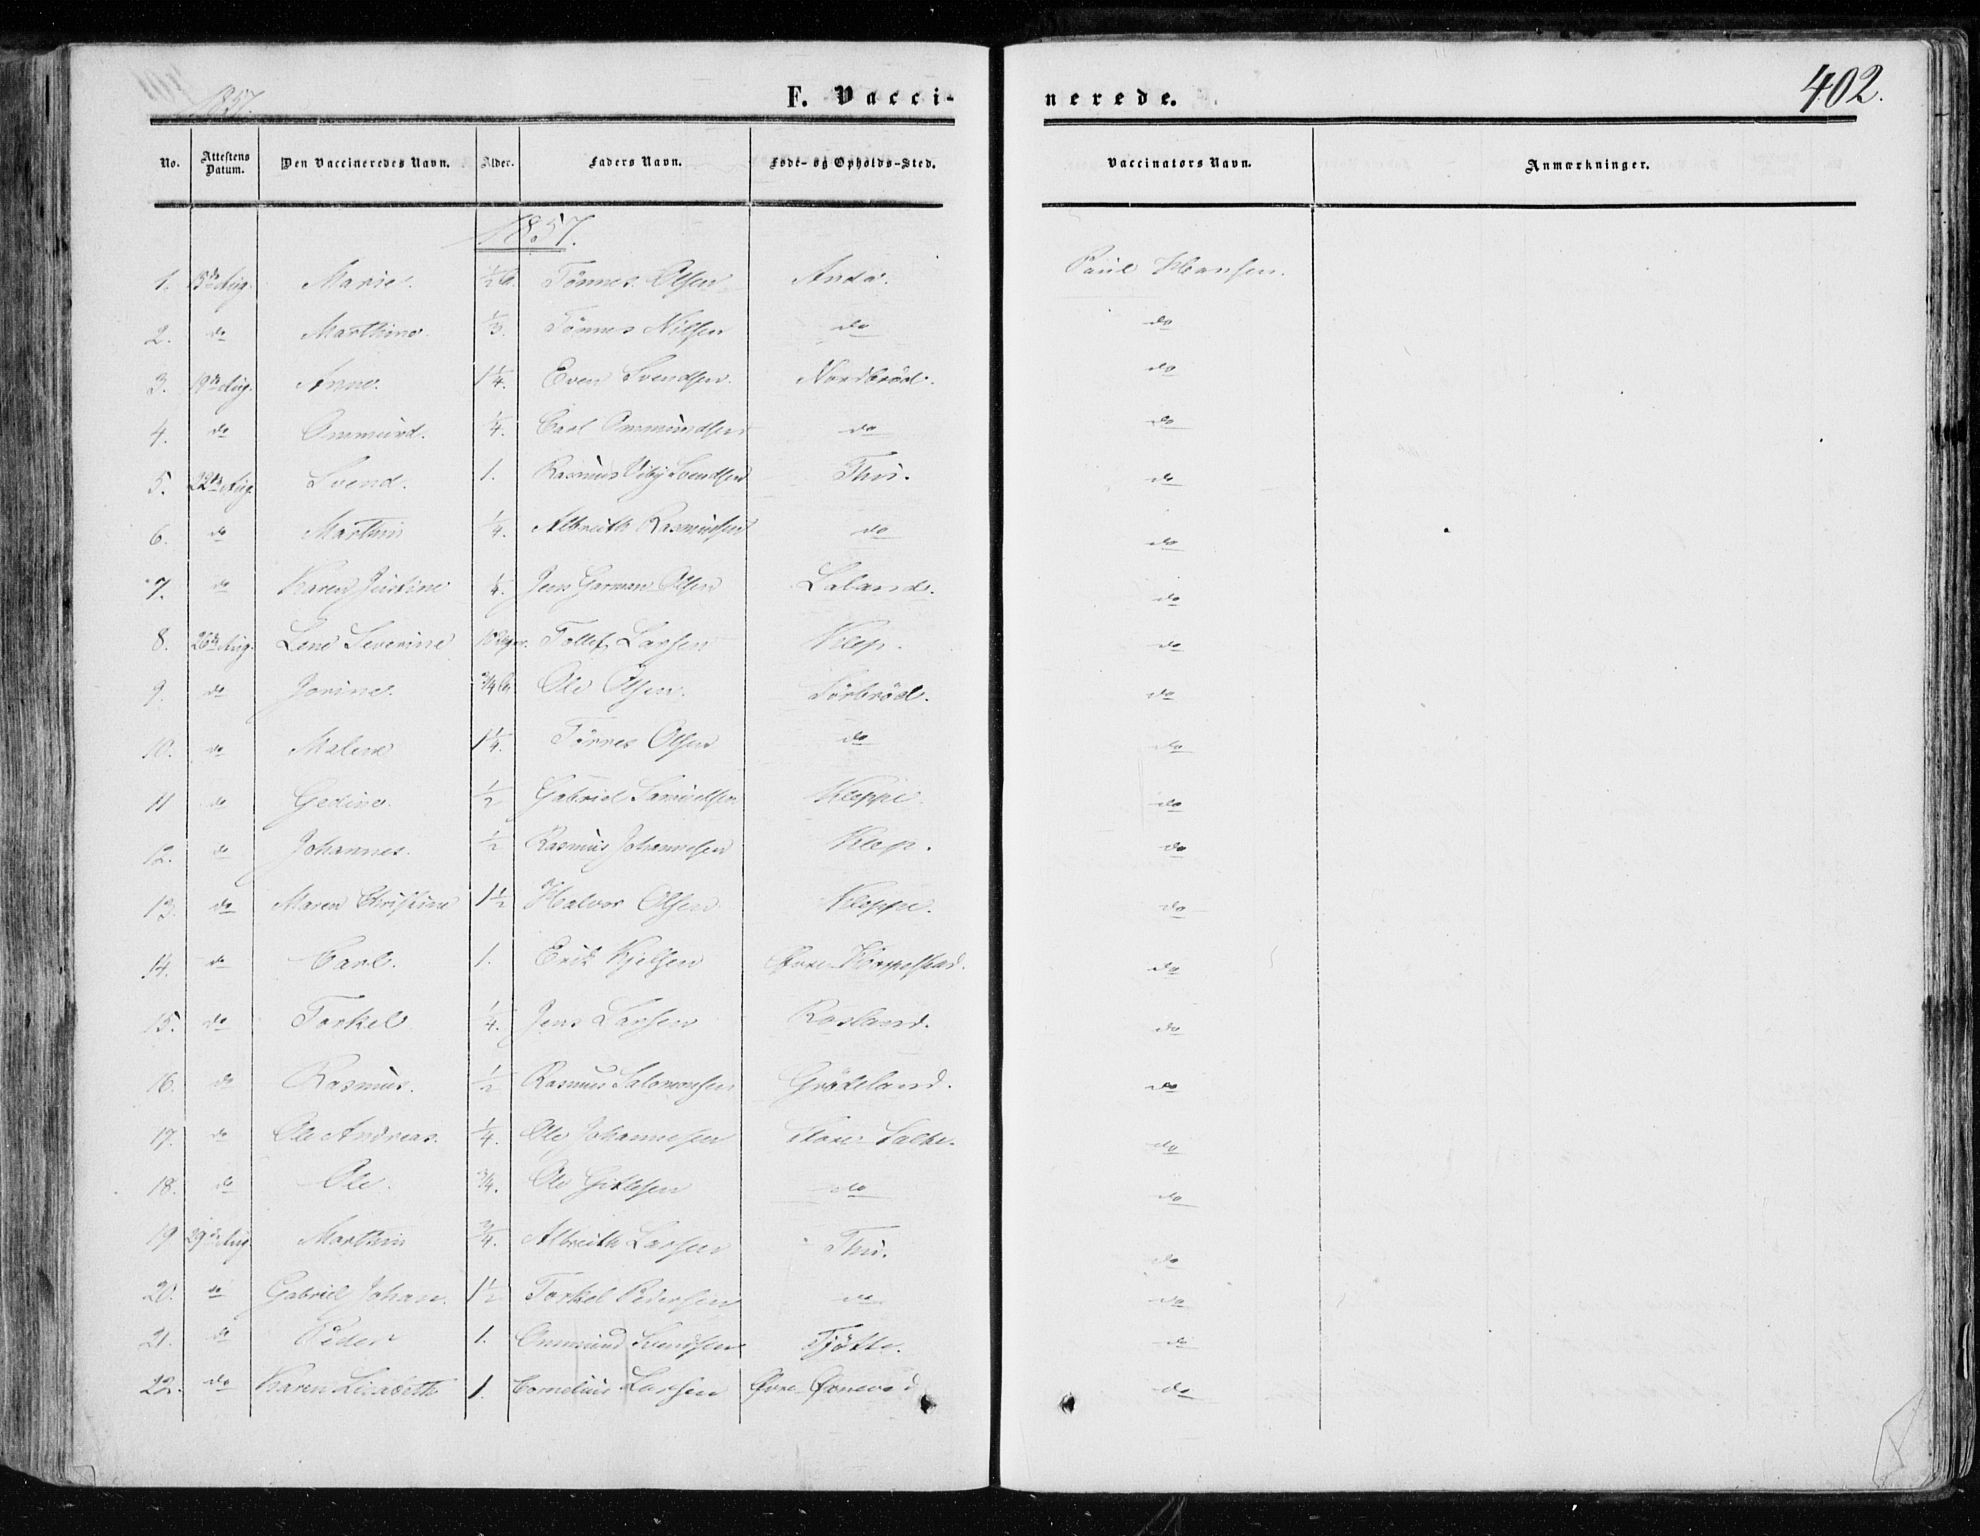 1857.
F. Vacci- nerede.
402.
No. Attestens Datum. Den Vaccineredes Navn. Alder. Faders Navn. Føde- og Opholds-Sted. Vaccinators Navn. Anmærkninger.
1857.
1. 15de Aug. Marie. ½ Tönnes Olsen Anda. Paul Hansen.
2. do Marthine. ⅓. Tönnes Nilsen do do
3. 19de Aug. Anne. 1¼. Even Svendsen. Nordbröd. do
4. do Ommund. ¼. Carl Ommundsen do do
5. 22de Aug. Svend. 1. Rasmus Svendsen Thu. do
6. do Marthin ¼. Albreth Rasmusen do do
7. do Karen Justine ¼. Jens Garman Olsen Laland. do
8. 26de Aug. Lene Severine Tollef Larsen Klep. do
9. do Jorine. ¾ Ole Olsen. Sörbröd. do
10. do Malene 1¼. Törres Olsen do do
11 do Gedine. ½ Gabriel Samuelsen Kleppe. do
12. do Johannes. ½ Rasmus Johannesen Klep. do
13. do Maren Christine 1½ Halvor Olsen Kleppe. do
14. do Carl. 1. Erik Kjelsen Øvre do
15. do Torkel ¼. Jens Larsen Rosland. do
16. do Rasmus. ½ Rasmus Salomonsen Grödeland. do
17. do Ole Andreas. ¼. Ole Johannesen Store Salte. do
18. do Ole. ¾. Ole Gitlesen do do
19 29de Aug. Marthin ¾. Albreth Larsen Thu. do
20. do Gabriel Johan. 1½ Torkel Pedersen do do
21. do Peder 1. Ommund Svendsen Tjötte. do
22. do Karen Lisabeth 1. Cornelius Larsen Øvre Øxnevad do